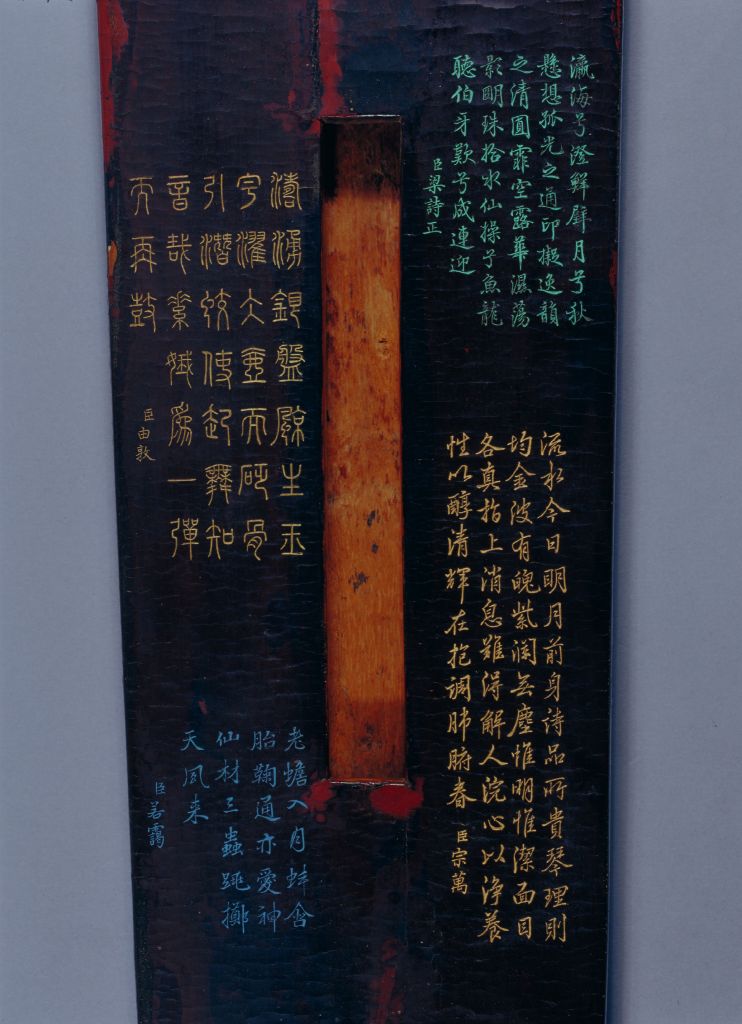 瀛海兮澄鮮月兮秋
懸想孤光之通印擬逸韻
之清圓霏空露華濕蕩
影明珠拾水仙操兮魚龍
聽伯牙歎兮成連迎
臣梁詩正
流水今日明月前身詩品所貴琴理則
均金波有魄紫瀾無塵惟明惟潔面目
各真指上消息難得解人浣心以淨養
性以醇清輝在抱調肺腑春
臣宗萬
濤湧銀盤涼生玉
宇濯冰壺而砭骨
引潛蛟使起舞知
音哉素娥為一彈
而再鼓
臣由敦
老蟾入月蚌含
胎鞠通亦愛神
仙材三蟲跳擲
天風来
臣若靄